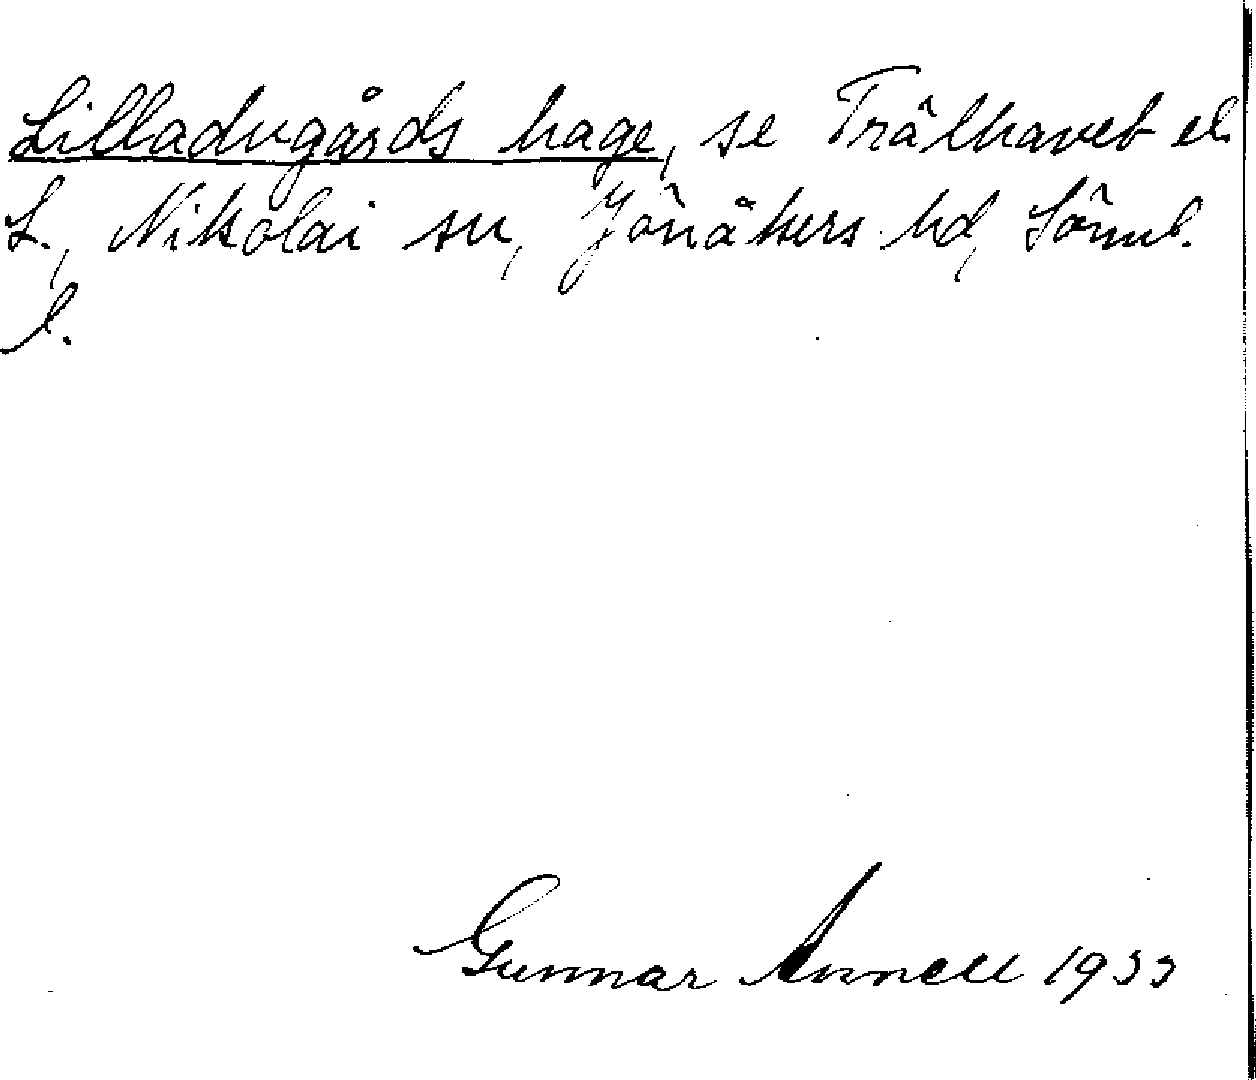 Lilladugårds hage, se Trälhavet el.
L., Nikolai sn, Jönåkers hd, Söml.
l.
Gunnar Annell 1933